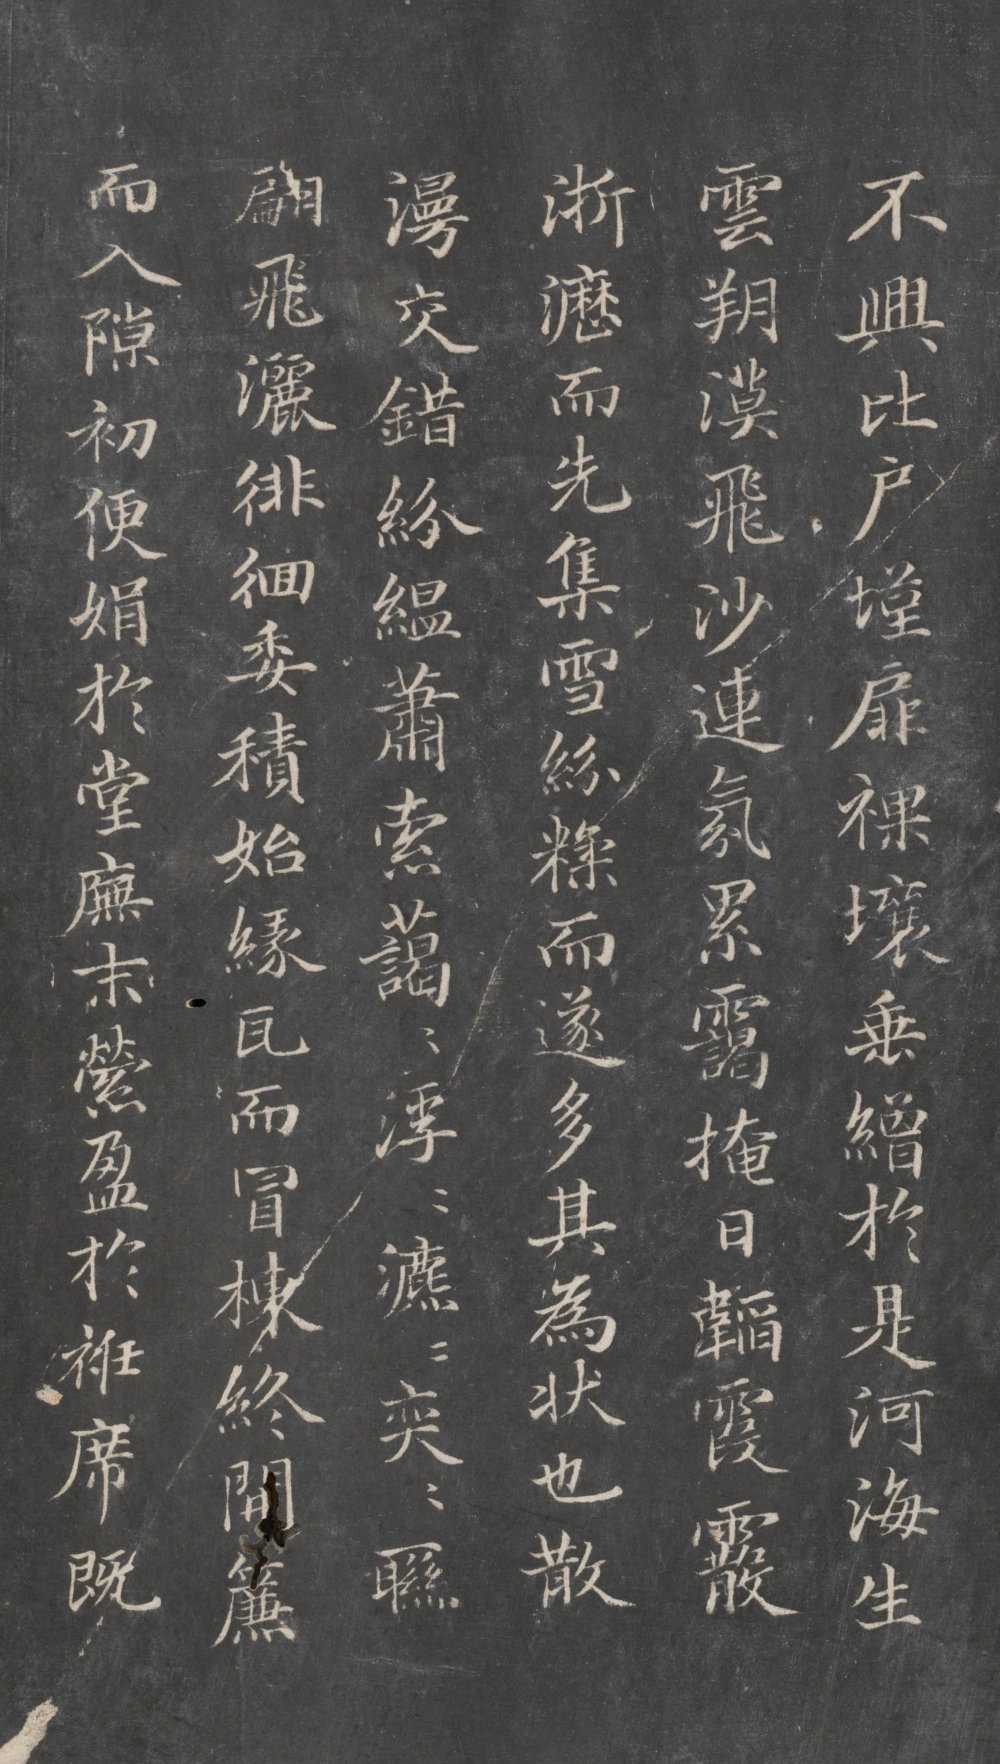 不興比户墐扉裸壤垂繒於是河海生
雲朔漠飛沙連氛累靄掩日韜霞霰
淅瀝而先集雪紛糅而遂多其為状也散
漫交錯紛緼蕭索藹〻浮〻瀌〻奕〻聯
翩飛灑徘徊委積始緣瓦而冒棟終開簾
而入隙初便娟於堂廡末縈盈於帷席既